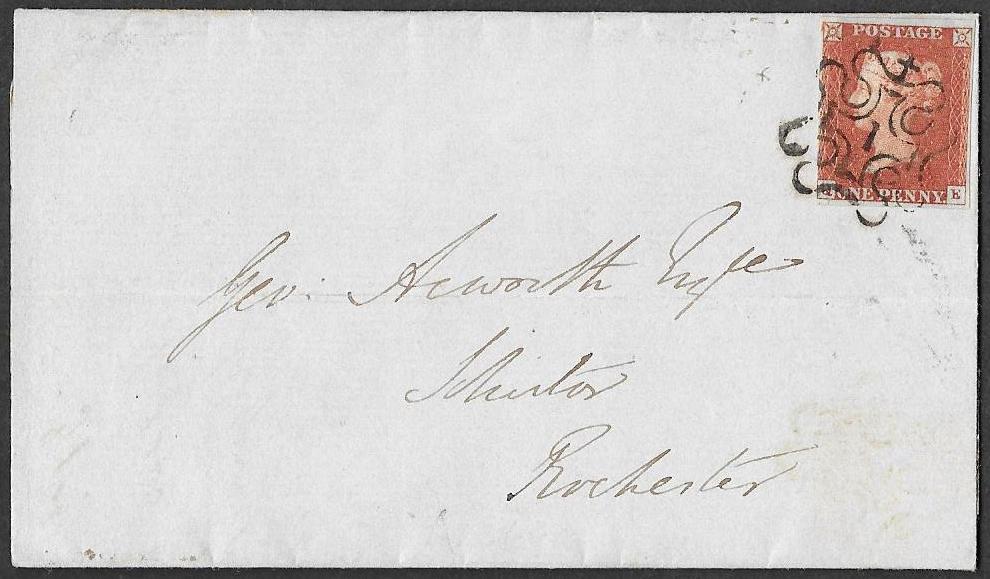 POSTAGE
1
ONE PENNY.
E
Geo. Acworth Esqre
Solicitor
Rochester